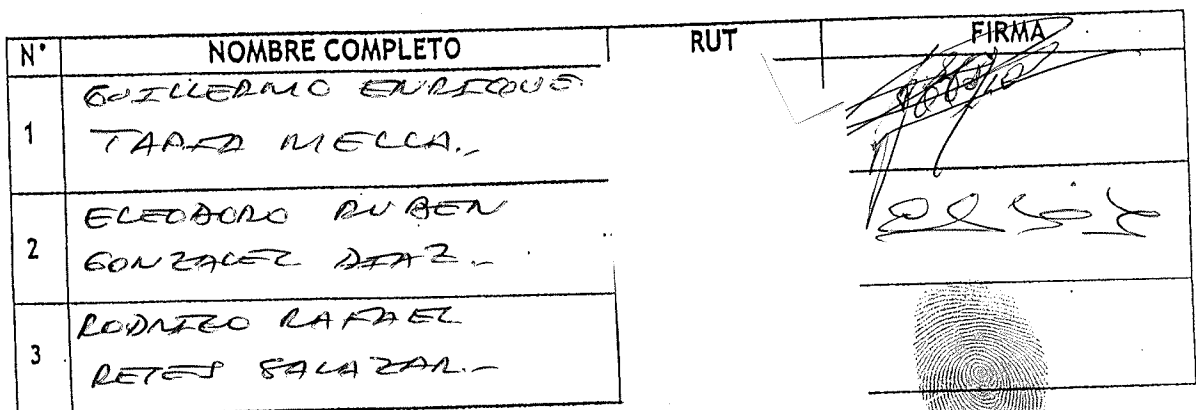 N° NOMBRE COMPLETO RUT FIRMA
GUILLERMO ENRIQUE
1
TAPIA MELLA.-
ELEODORO RUBEN
2
GONZALEZ DIAZ.-
RODRIGO RAFAEL
3
REYES SALAZAR.-